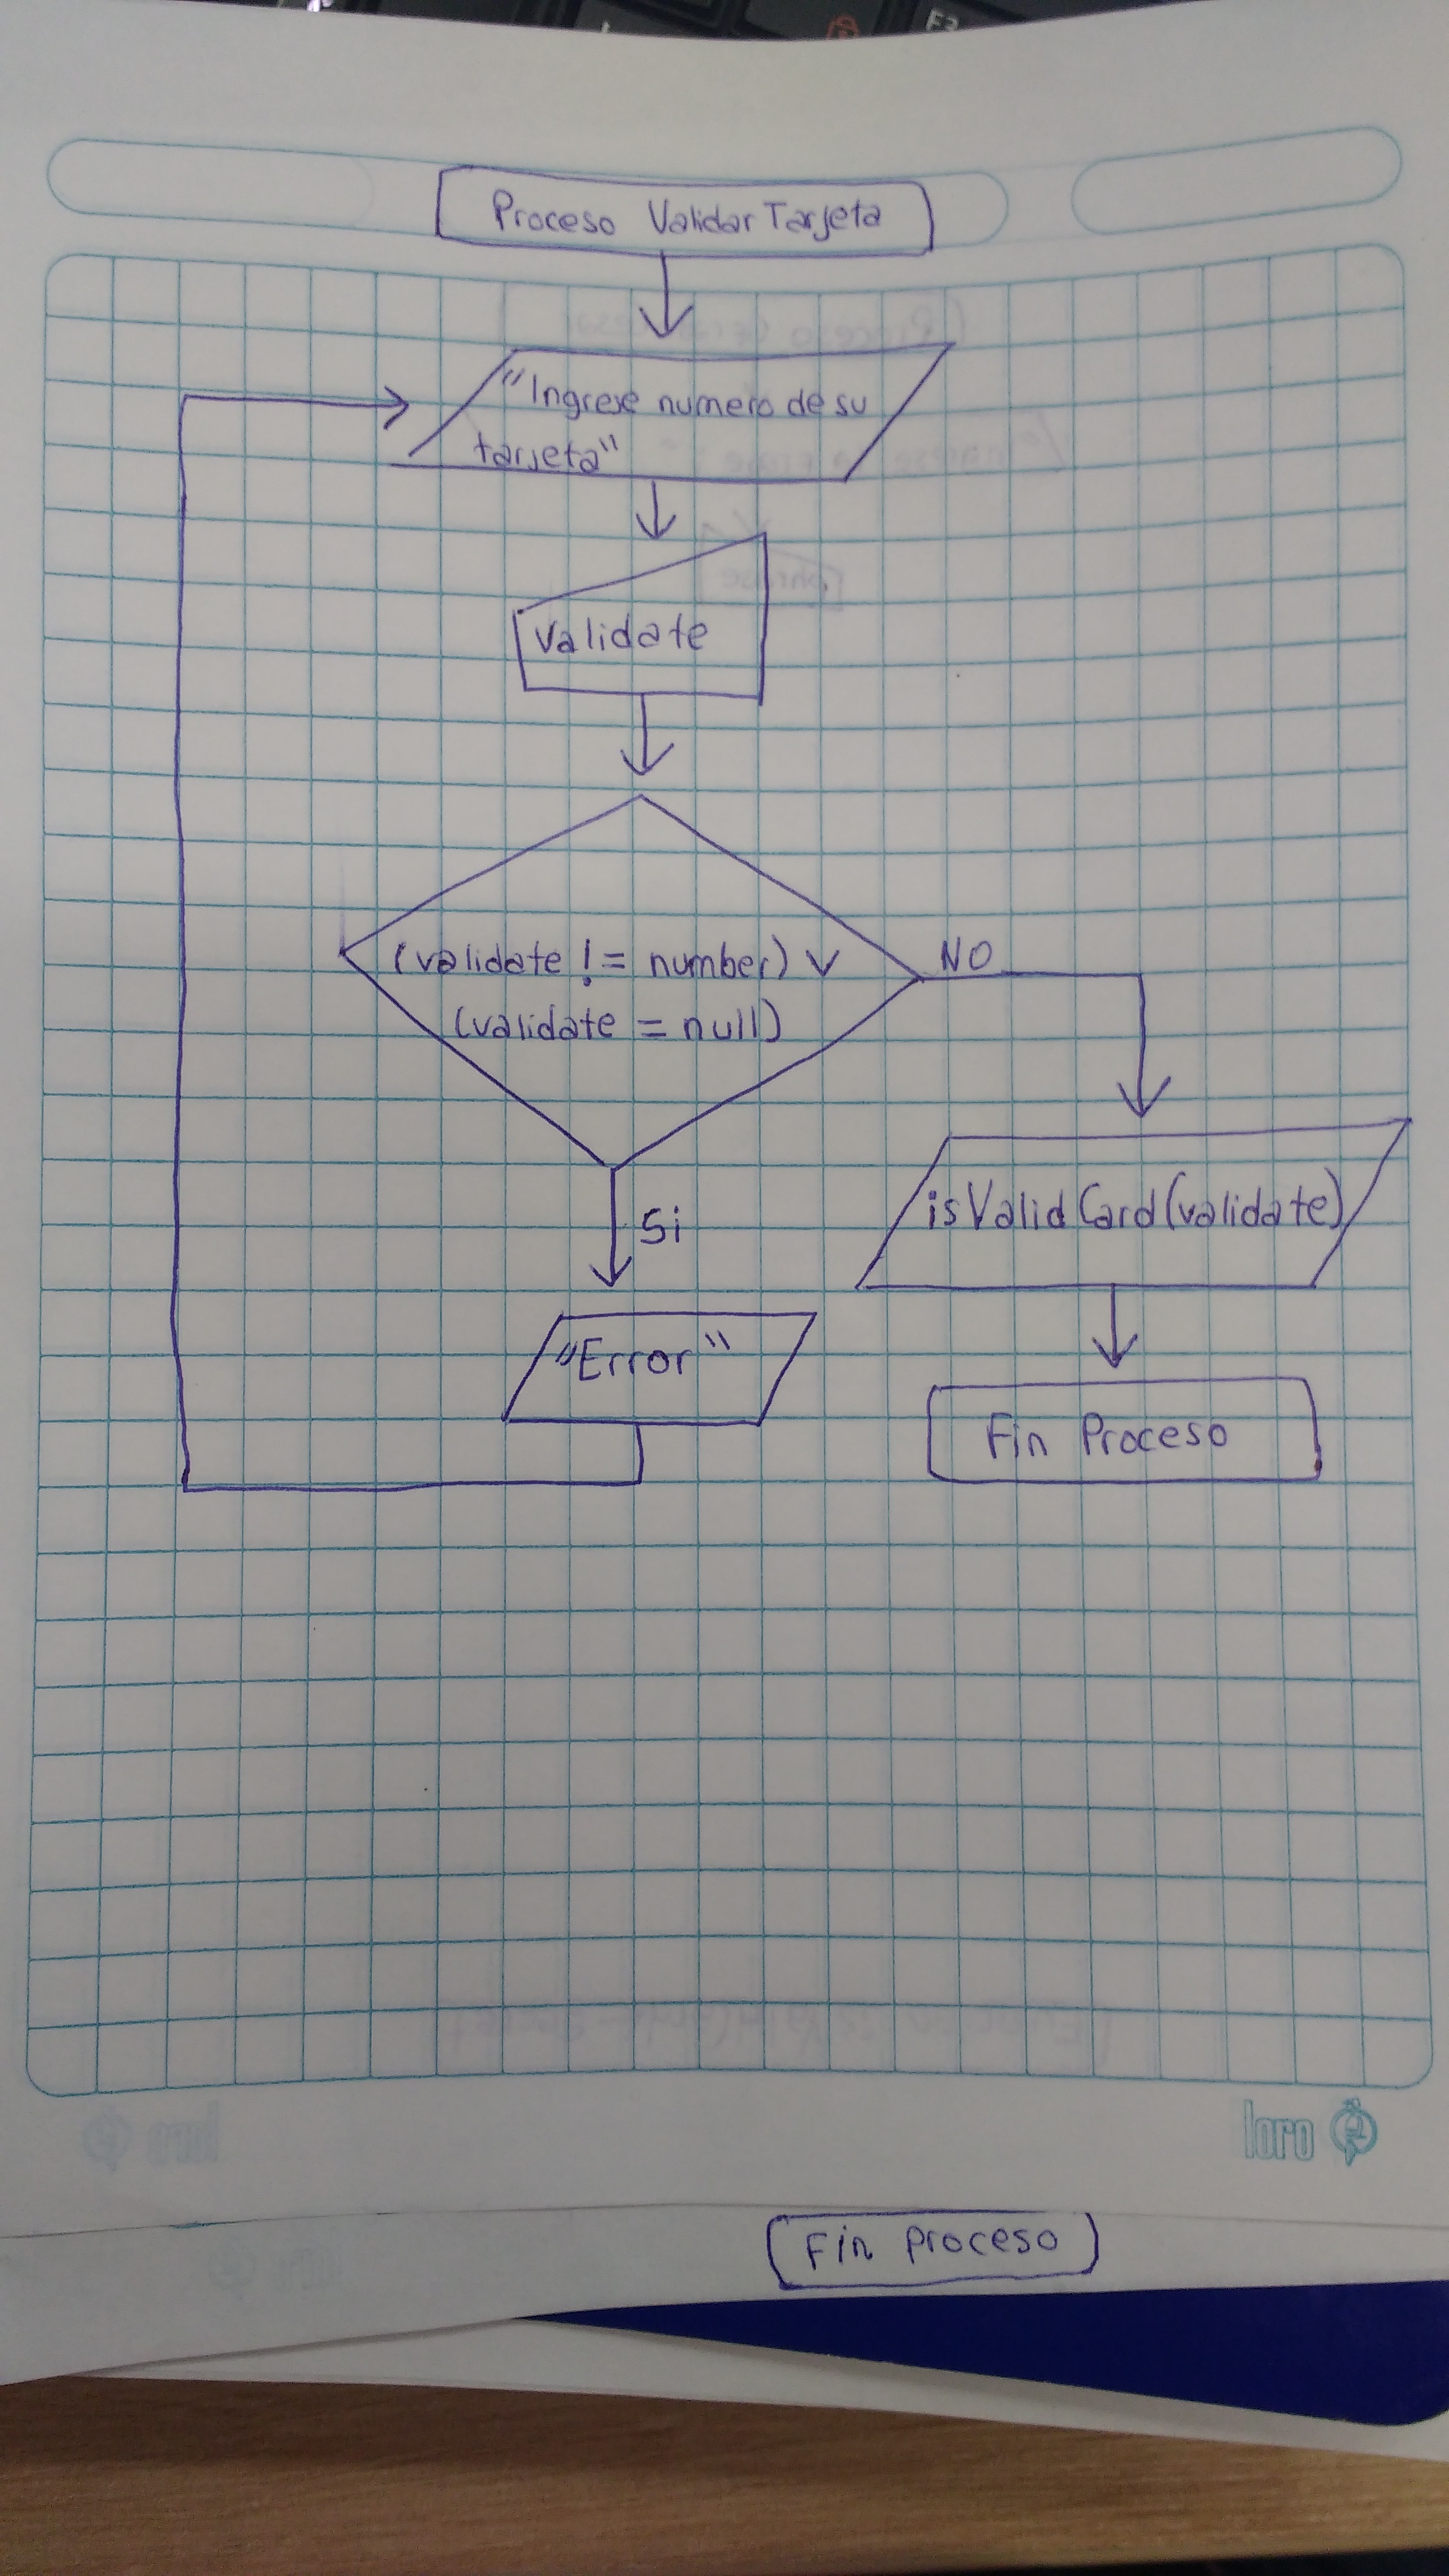 F3
Proceso Validar Tarjeta
"Ingrese numero de su
tarjeta"
validate
(validate != number) v
(validate = null)
NO
Si
isValidCard(validate)
"Error"
Fin Proceso
loro
Fin Proceso